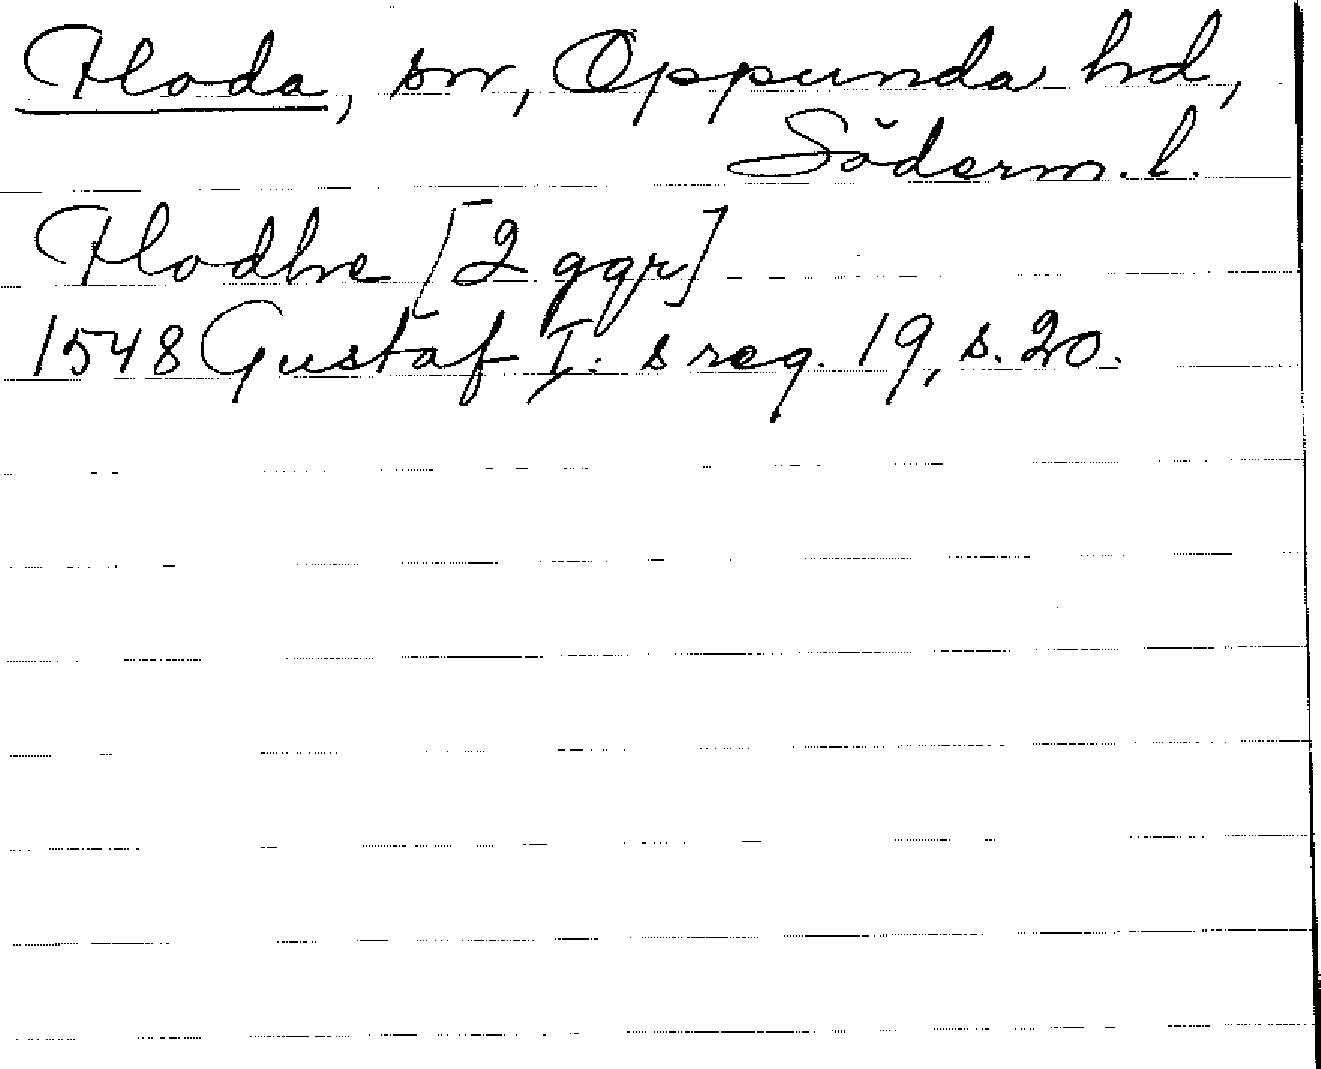 Floda, sn, Oppunda hd,
Söderm. l.
Flodhe [2 ggr]
1548 Gustaf I: s reg. 19, s. 20.